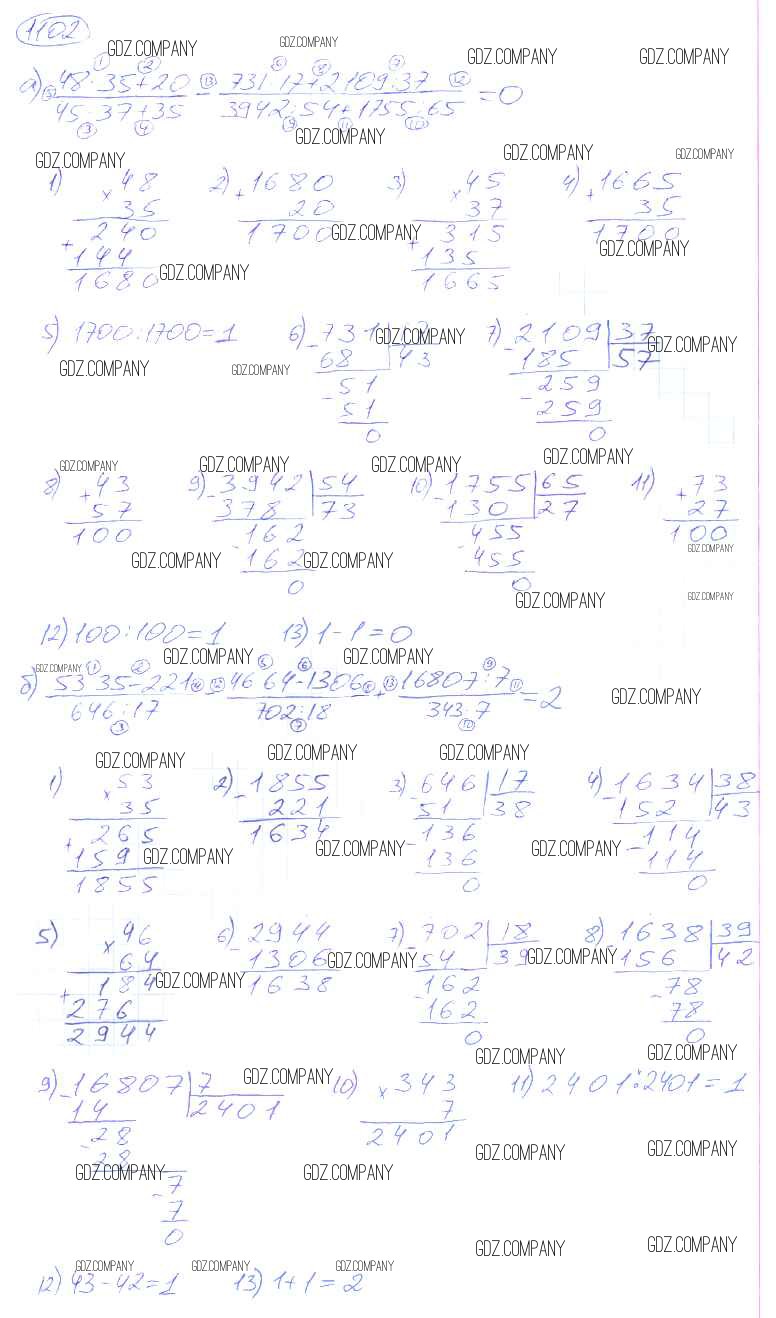 1102
GDZ.COMPANY GDZ.COMPANY GDZ.COMPANY GDZ.COMPANY
① ② ⑥ ⑧ ⑦
а) 48·35+20 ⑬ 731:17+2109:37 ⑫
⑤ — = 0
45·37+35 3942:54+1755:65
③ ④ ⑨ ⑪ ⑩
GDZ.COMPANY
GDZ.COMPANY GDZ.COMPANY GDZ.COMPANY
1) 48 2) 1680 3) 45 4) 1665
× 35 + 20 × 37 + 35
240 1700 GDZ.COMPANY 315 1700
+ 144 + 135 GDZ.COMPANY
1680 GDZ.COMPANY 1665
5) 1700:1700=1 6) 731 GDZ.COMPANY 7) 2109 37
GDZ.COMPANY GDZ.COMPANY - 68 43 - 185 57 GDZ.COMPANY
51 259
- 51 - 259
0 0
GDZ.COMPANY GDZ.COMPANY GDZ.COMPANY GDZ.COMPANY
8) 43 9) 3942 54 10) 1755 65 11) 73
+ 57 - 378 73 - 130 27 + 27
100 162 455 100
GDZ.COMPANY - 162 GDZ.COMPANY - 455 GDZ.COMPANY
0 0
GDZ.COMPANY GDZ.COMPANY
12) 100:100=1 13) 1-1=0
GDZ.COMPANY GDZ.COMPANY GDZ.COMPANY
① ② ⑤ ⑥ ⑨
б) 53·35-221 ④ ⑫ 46·64-1306 ⑧ ⑬ 16807:7 ⑪
- + = 2 GDZ.COMPANY
646:17 702:18 343·7
③ ⑦ ⑩
GDZ.COMPANY GDZ.COMPANY GDZ.COMPANY
1) 53 2) 1855 3) 646 17 4) 1634 38
× 35 - 221 - 51 38 - 152 43
265 1634 136 114
+ 159 GDZ.COMPANY GDZ.COMPANY - 136 GDZ.COMPANY - 114
1855 0 0
5) 46 6) 2944 7) 702 18 8) 1638 39
× 64 - 1306 GDZ.COMPANY - 54 39 GDZ.COMPANY - 156 42
184 GDZ.COMPANY 1638 162 78
+ 276 - 162 - 78
2944 0 0
GDZ.COMPANY GDZ.COMPANY
9) 16807 7 GDZ.COMPANY 10) 343 11) 2401:2401=1
- 14 2401 × 7
28 2401
- 28 GDZ.COMPANY GDZ.COMPANY
GDZ.COMPANY GDZ.COMPANY
7
- 7
0
GDZ.COMPANY GDZ.COMPANY
GDZ.COMPANY GDZ.COMPANY GDZ.COMPANY
12) 43-42=1 13) 1+1=2